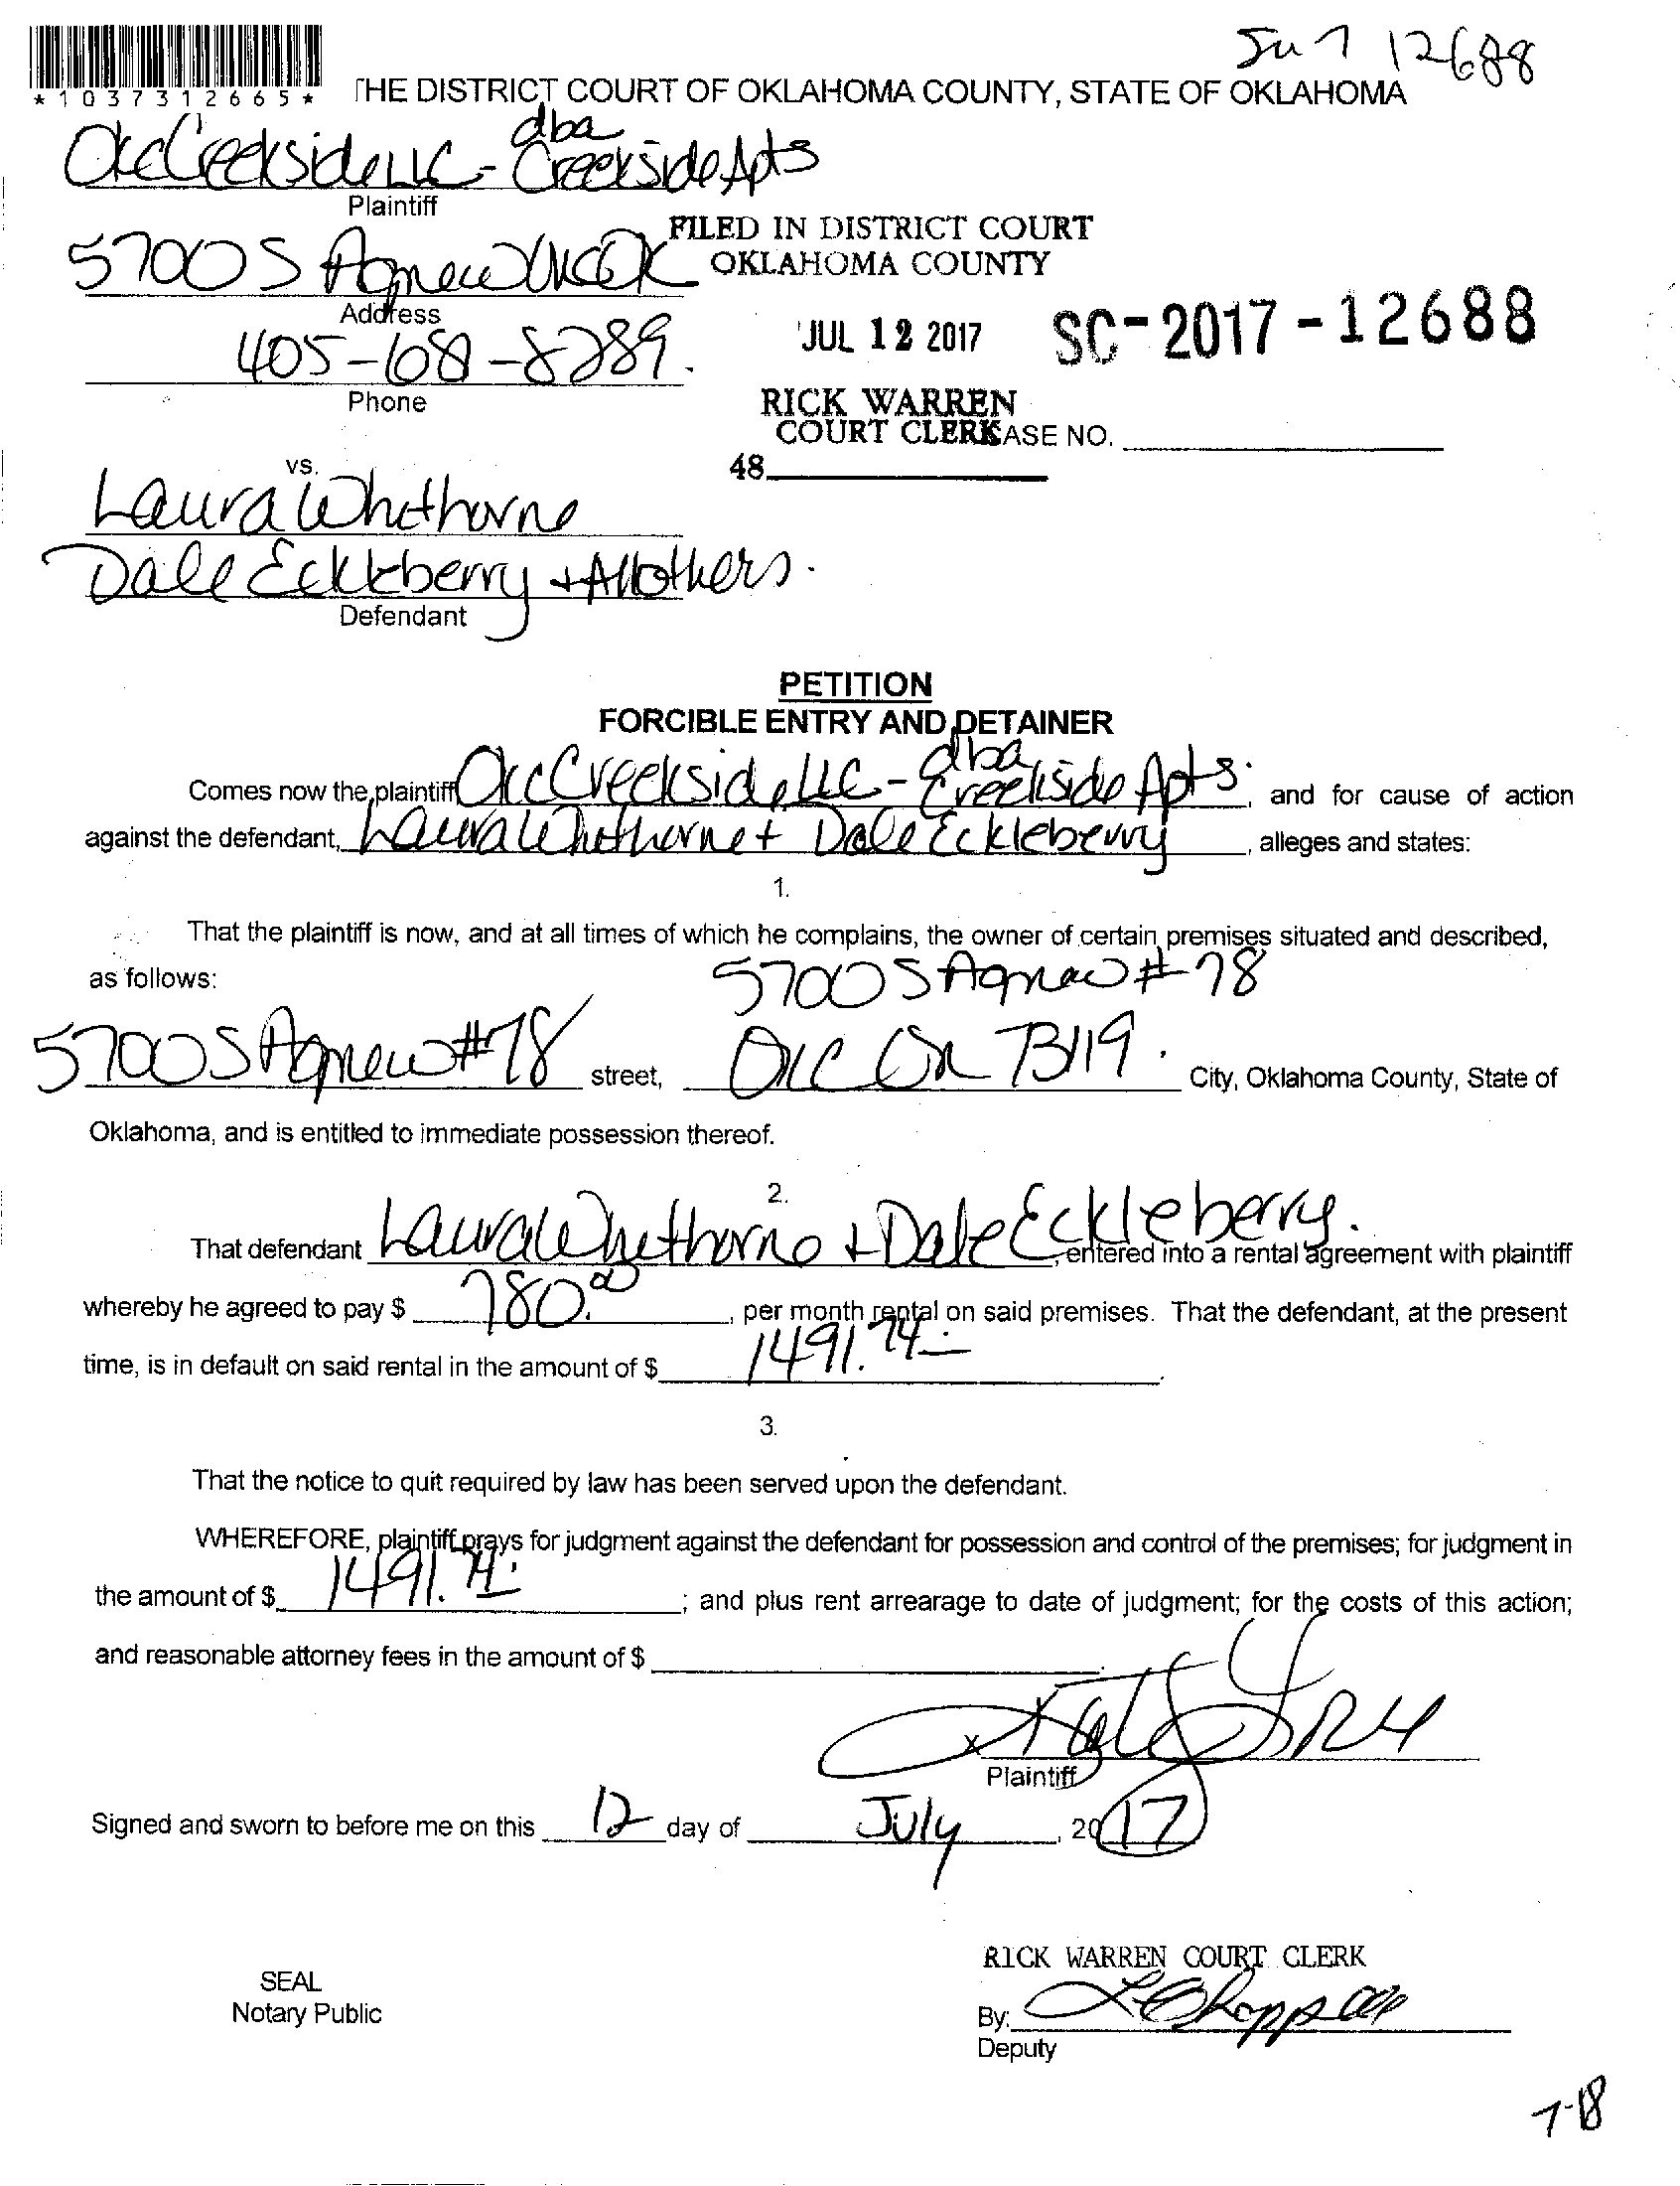 *1037312665*
THE DISTRICT COURT OF OKLAHOMA COUNTY, STATE OF OKLAHOMA
12688
dba
OkcCreekside LLC - Creekside Apts
Plaintiff
FILED IN DISTRICT COURT
OKLAHOMA COUNTY
5700 S Agnew OKC OK
Address
JUL 12 2017
SC-2017-12688
405-681-8289.
Phone
RICK WARREN
COURT CLERK
CASE NO.
48
vs.
Laura Whethorne
Dale Eckleberry + All others.
Defendant
PETITION
FORCIBLE ENTRY AND DETAINER
dba
Comes now the plaintiff OkcCreekside LLC - Creekside Apts. , and for cause of action
against the defendant, Laura Whethorne + Dale Eckleberry , alleges and states:
1.
That the plaintiff is now, and at all times of which he complains, the owner of certain premises situated and described,
as follows: 5700 S Agnew #78
5700 S Agnew #78 street, OKC OK 73119. City, Oklahoma County, State of
Oklahoma, and is entitled to immediate possession thereof.
2.
That defendant Laura Whethorne + Dale Eckleberry. , entered into a rental agreement with plaintiff
whereby he agreed to pay $ 780.00 , per month rental on said premises. That the defendant, at the present
time, is in default on said rental in the amount of $ 1491.74 .
3.
That the notice to quit required by law has been served upon the defendant.
WHEREFORE, plaintiff prays for judgment against the defendant for possession and control of the premises; for judgment in
the amount of $ 1491.74 ; and plus rent arrearage to date of judgment; for the costs of this action;
and reasonable attorney fees in the amount of $ .
x
Plaintiff
Signed and sworn to before me on this 12 day of July , 2017
RICK WARREN COURT CLERK
SEAL
Notary Public
By:
Deputy
7-18